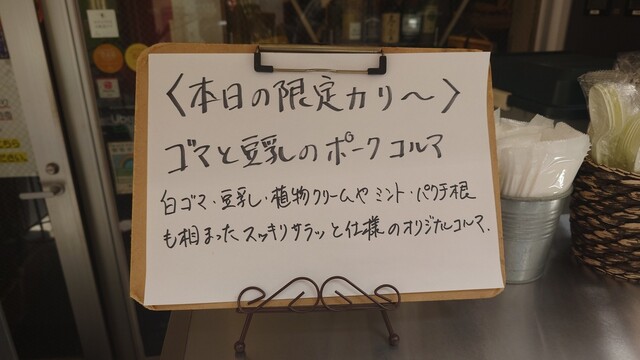 〈本日の限定カリ〜〉
ゴマと豆乳のポークコルマ
白ゴマ・豆乳・植物クリームやミント・パクチ根
も相まったスッキリサラッと仕様のオリジナルコルマ.